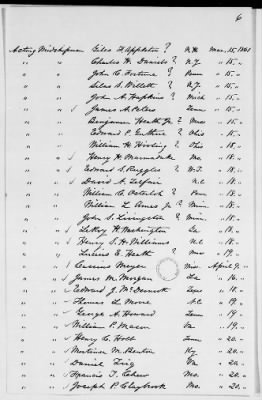 6
Acting Midshipman Giles F Appleton ? N.H. Mar. 15, 1861
" " Charles H. Daniels ? N.J. " 15, "
" " John C. Fortune ? Penn " 15, "
" " Silas S. Willett ? N.J. " 15, "
" " John A. Hopkins ? Mich " 15, "
" " James A. Peters Tenn " 15, "
" " Benjamin Heath Jr. ? " 15, "
" " Edward P. ? Ohio " 15, "
" " William H. ? Ohio " 18, "
" " Henry H. Marmaduke Mo. " 18, "
" " Edward S. Ruggles " 18, "
" " David A. Telfair N.C. " 18, "
" " William C. ? Penn " 18, "
" " William L. Ames Jr ? Minn " 18, "
" " John S. Livingston Minn. " 18, "
" " LeRoy H. Washington Ga " 18, "
" " Henry S. H. Williams N.C. " 18, "
" " Lucius E. Heath ? Me " 19, "
" " Cassius Meyer Miss April 9, "
" " James M. Morgan La " 16, "
" " Edward J. McDermott Texas " 18, "
" " Thomas L. Moore N.C. " 19, "
" " George A. Howard Tenn " 19, "
" " William P. Mason Va. " 19, "
" " Henry C. Holt Tenn " 20, "
" " Mortimer M. Benton Ky " 20, "
" " Daniel Trigg Va " 20, "
" " Francis T. Chew Mo. " 20, "
" " Joseph P. Claybrook Mo. " 20, "